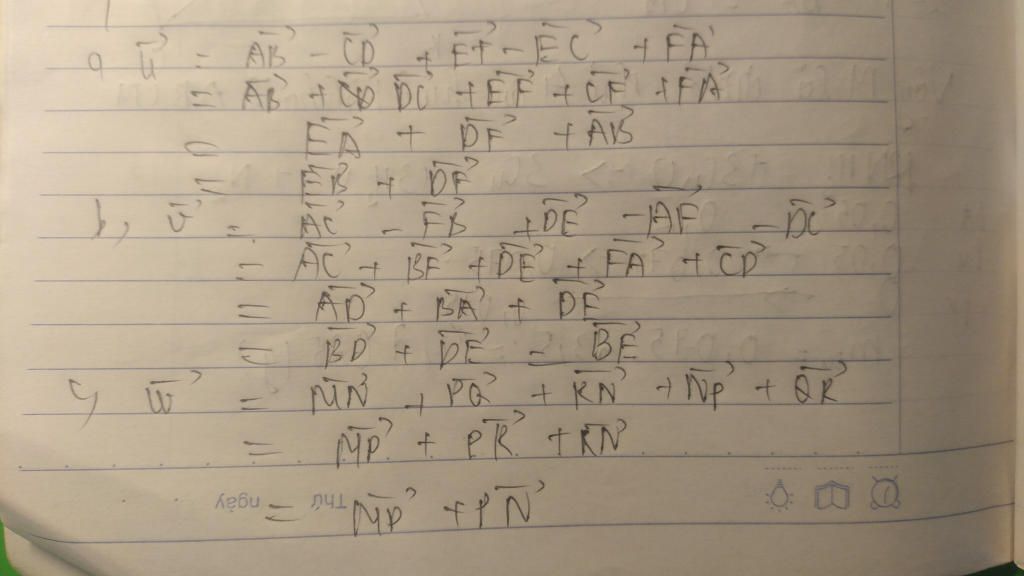 a, u⃗ = AB⃗ - CD⃗ + EF⃗ - EC⃗ + FA⃗
= AB⃗ + DC⃗ + EF⃗ + CE⃗ + FA⃗
= EA⃗ + DF⃗ + AB⃗
= EB⃗ + DF⃗
b, v⃗ = AC⃗ - FB⃗ + DE⃗ - AF⃗ - DC⃗
= AC⃗ + BF⃗ + DE⃗ + FA⃗ + CD⃗
= AD⃗ + BA⃗ + DE⃗
= BD⃗ + DE⃗ = BE⃗
c, w⃗ = MN⃗ + PQ⃗ + RN⃗ + NP⃗ + QR⃗
= MP⃗ + PR⃗ + RN⃗
= MP⃗ + PN⃗
Thứ ngày